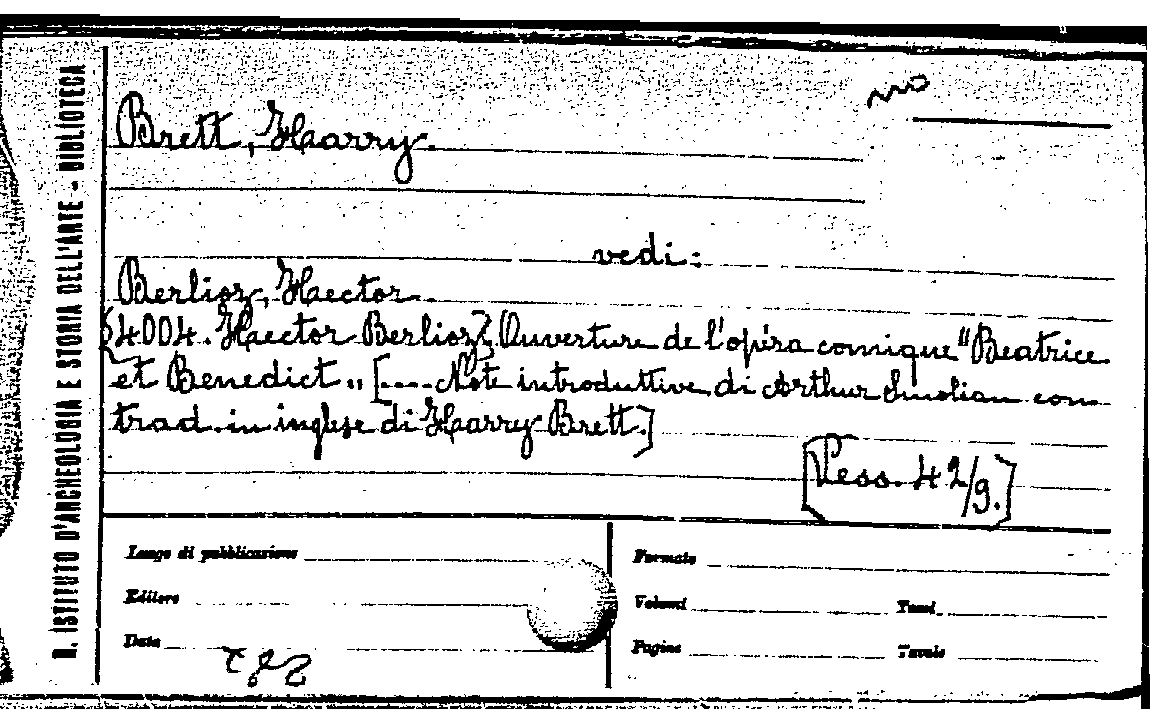 R. ISTITUTO D'ARCHEOLOGIA E STORIA DELL'ARTE - BIBLIOTECA
Brett, Harry.
vedi:
Berlioz, Hector.
54004. Hector Berlioz, Ouverture de l'opéra comique "Beatrice
et Benedict„ [.... Note introduttive di Arthur Smolian con
trad. in inglese di Harry Brett.]
[Vess. 42/9.]
Luogo di pubblicazione
Formato
Editore
Volumi
Tomi
Data
Pagine
Tavole